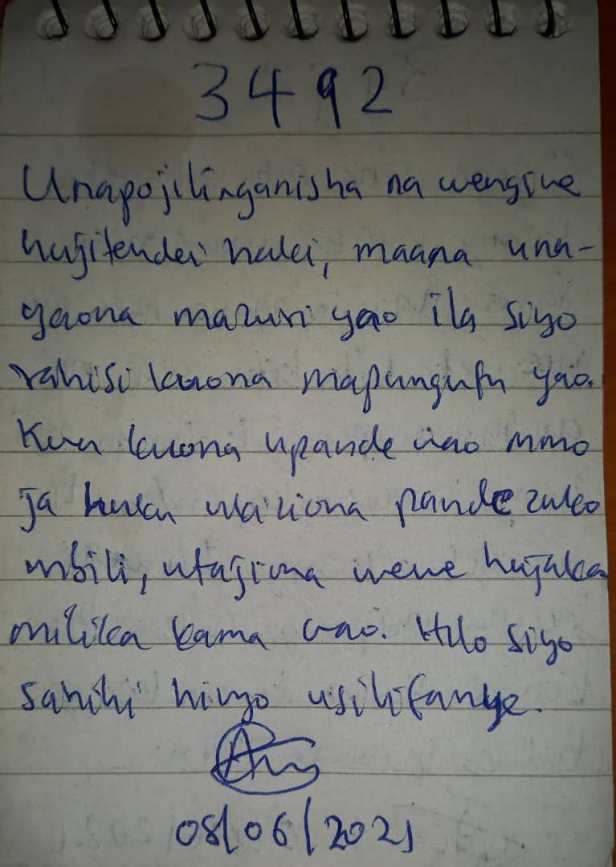 3492
Unapojilinganisha na wengine
hujitendei haki, maana una-
yaona mazuri yao ila siyo
rahisi kuona mapungufu yao.
Kwa kuona upande wao mmo
ja huku ukiziona pande zako
mbili, utajiona wewe hujaka
milika kama wao. Hilo siyo
sahihi hivyo usilifanye.
08/06/2021